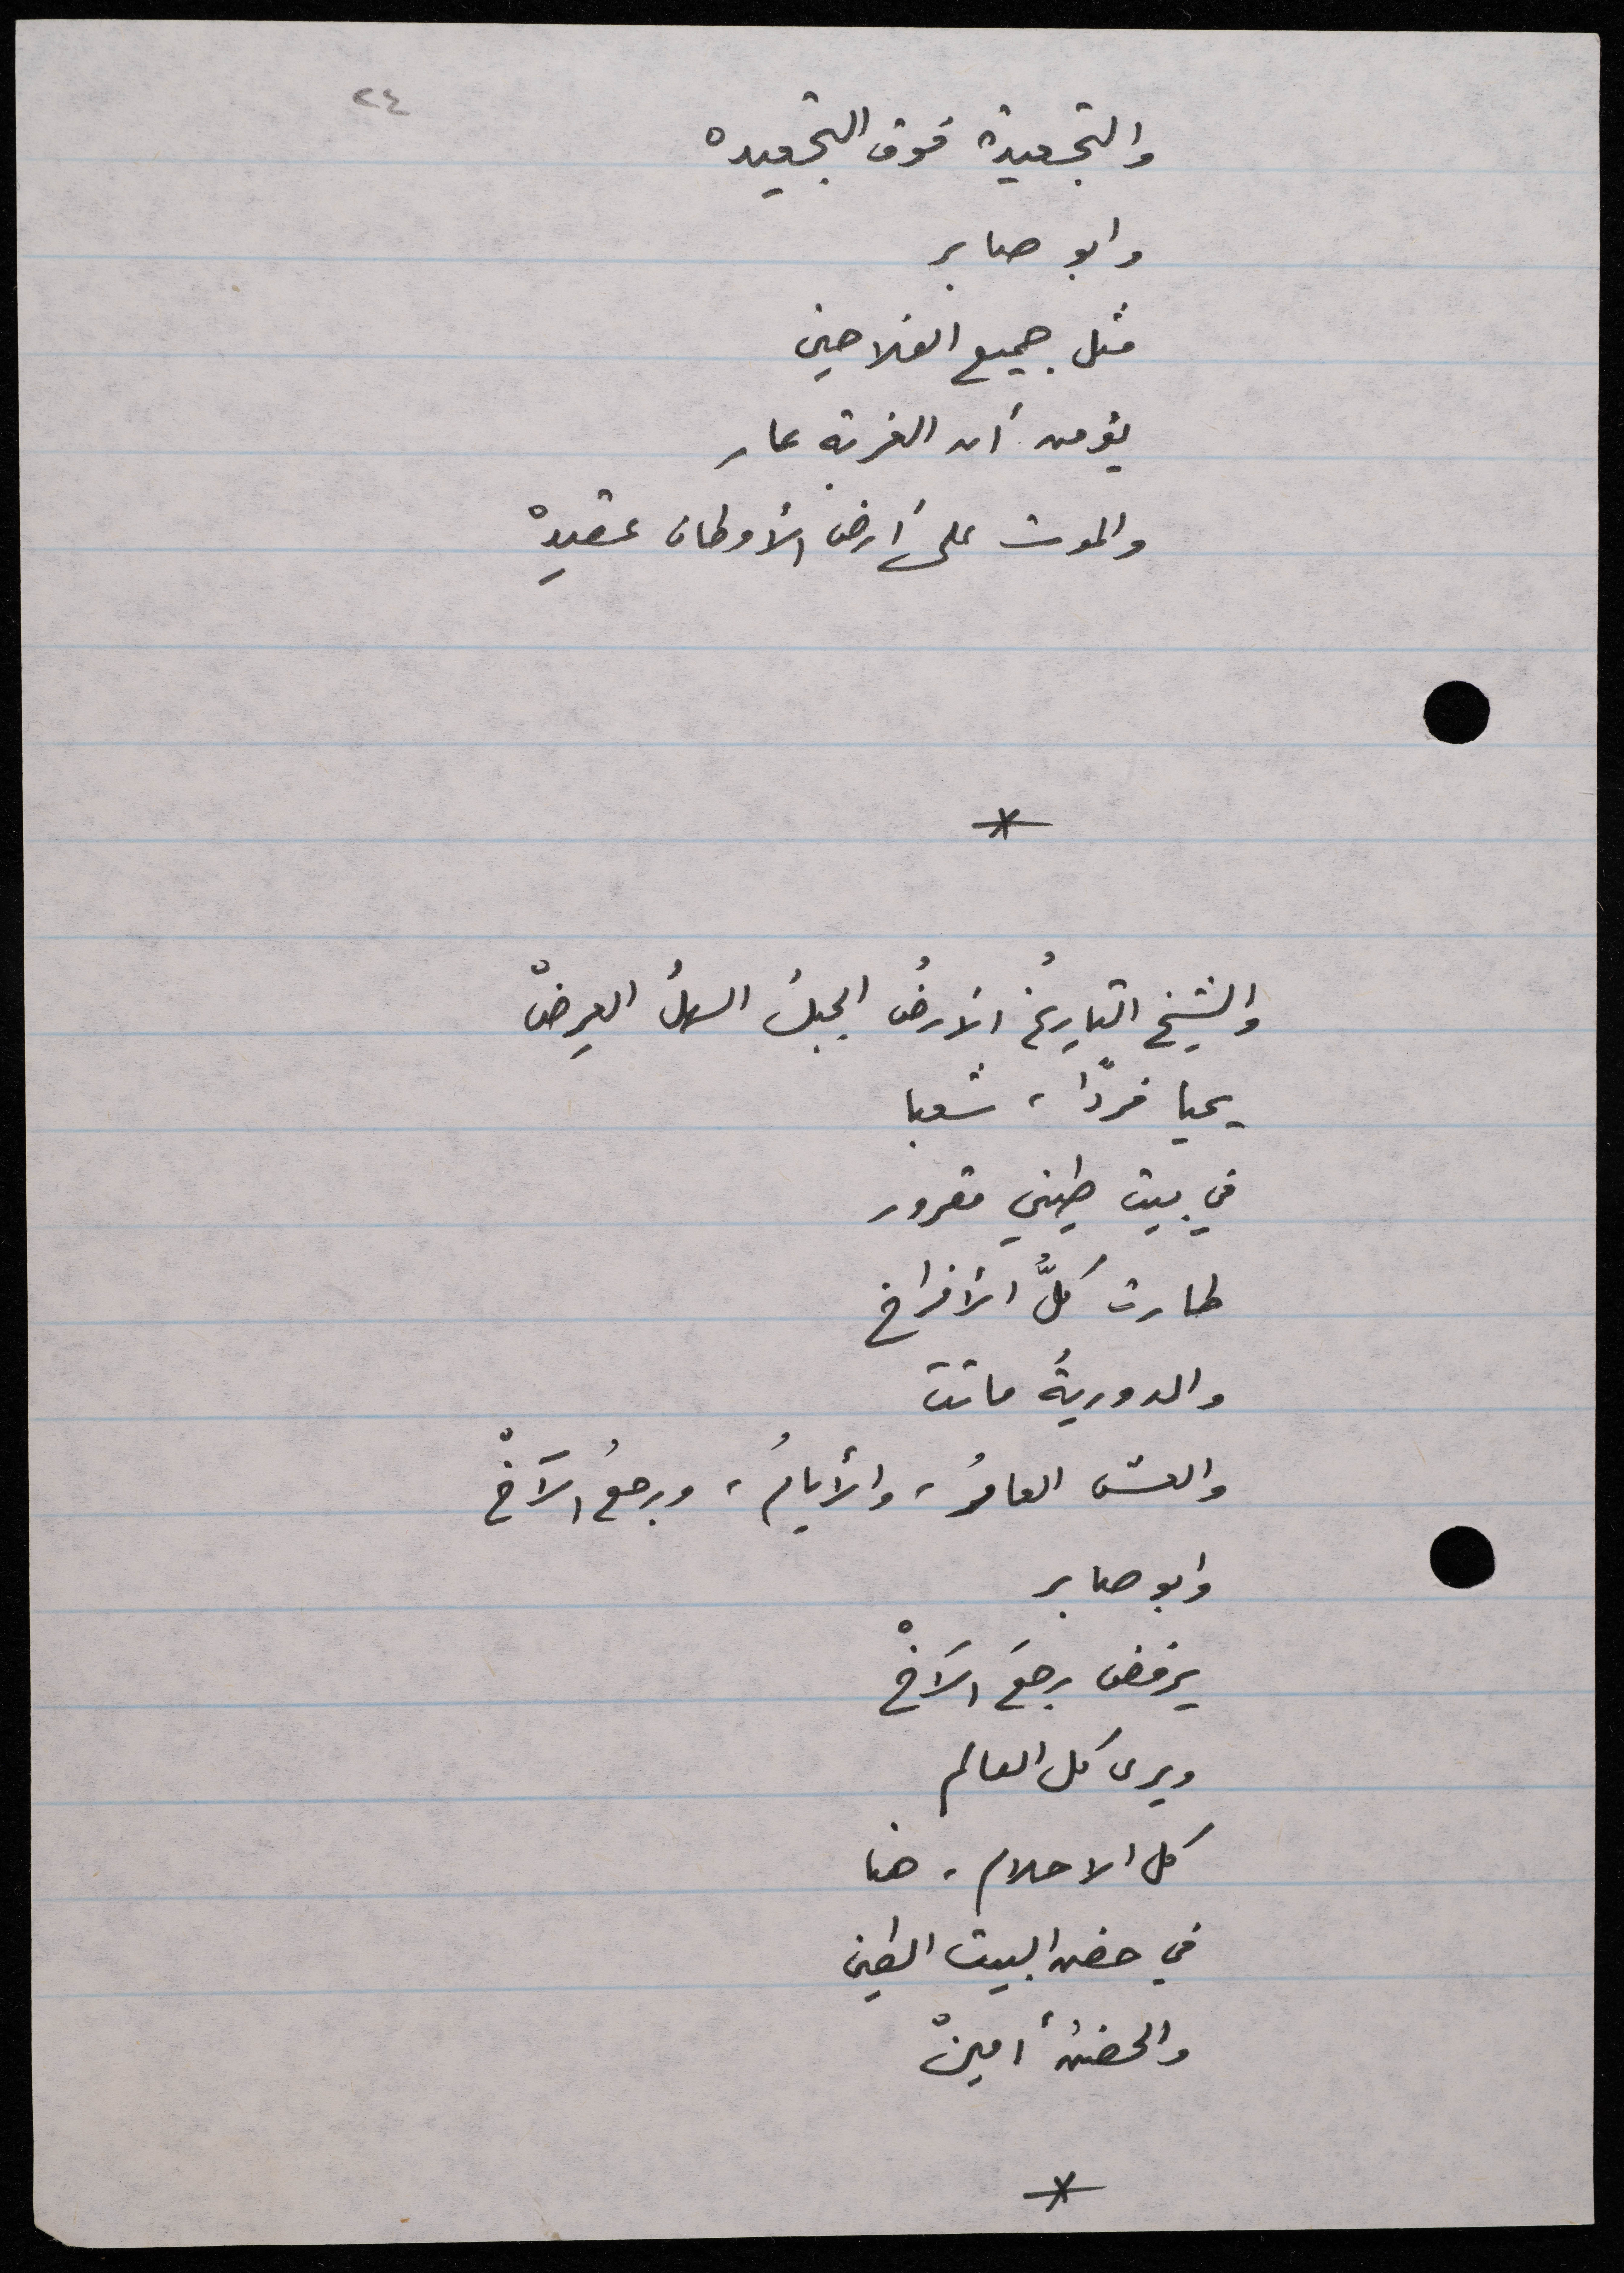 ٢٤
والتجعيدة فوق التجعيده
وابو صابر
مثل جميع الفلاحين
يؤمن أن الغربة عار
والموت على أرض الأوطان عقيدهْ
*
والشيخ التاريخُ الأرضُ الجبلُ السهلُ العرضْ
يحيا فردًا، شعبا
في بيت طيني مقرور
طارت كلُّ الأفراخ
والدوريةُ ماتت
والعش العامرُ، والأيامُ، ورجعُ الآخْ
وابو صابر
يرفض رجعَ الآخْ
ويرى كل العالم
كل الاحلام، هنا
في حضن البيت الطين
والحضنُ أمينْ
*